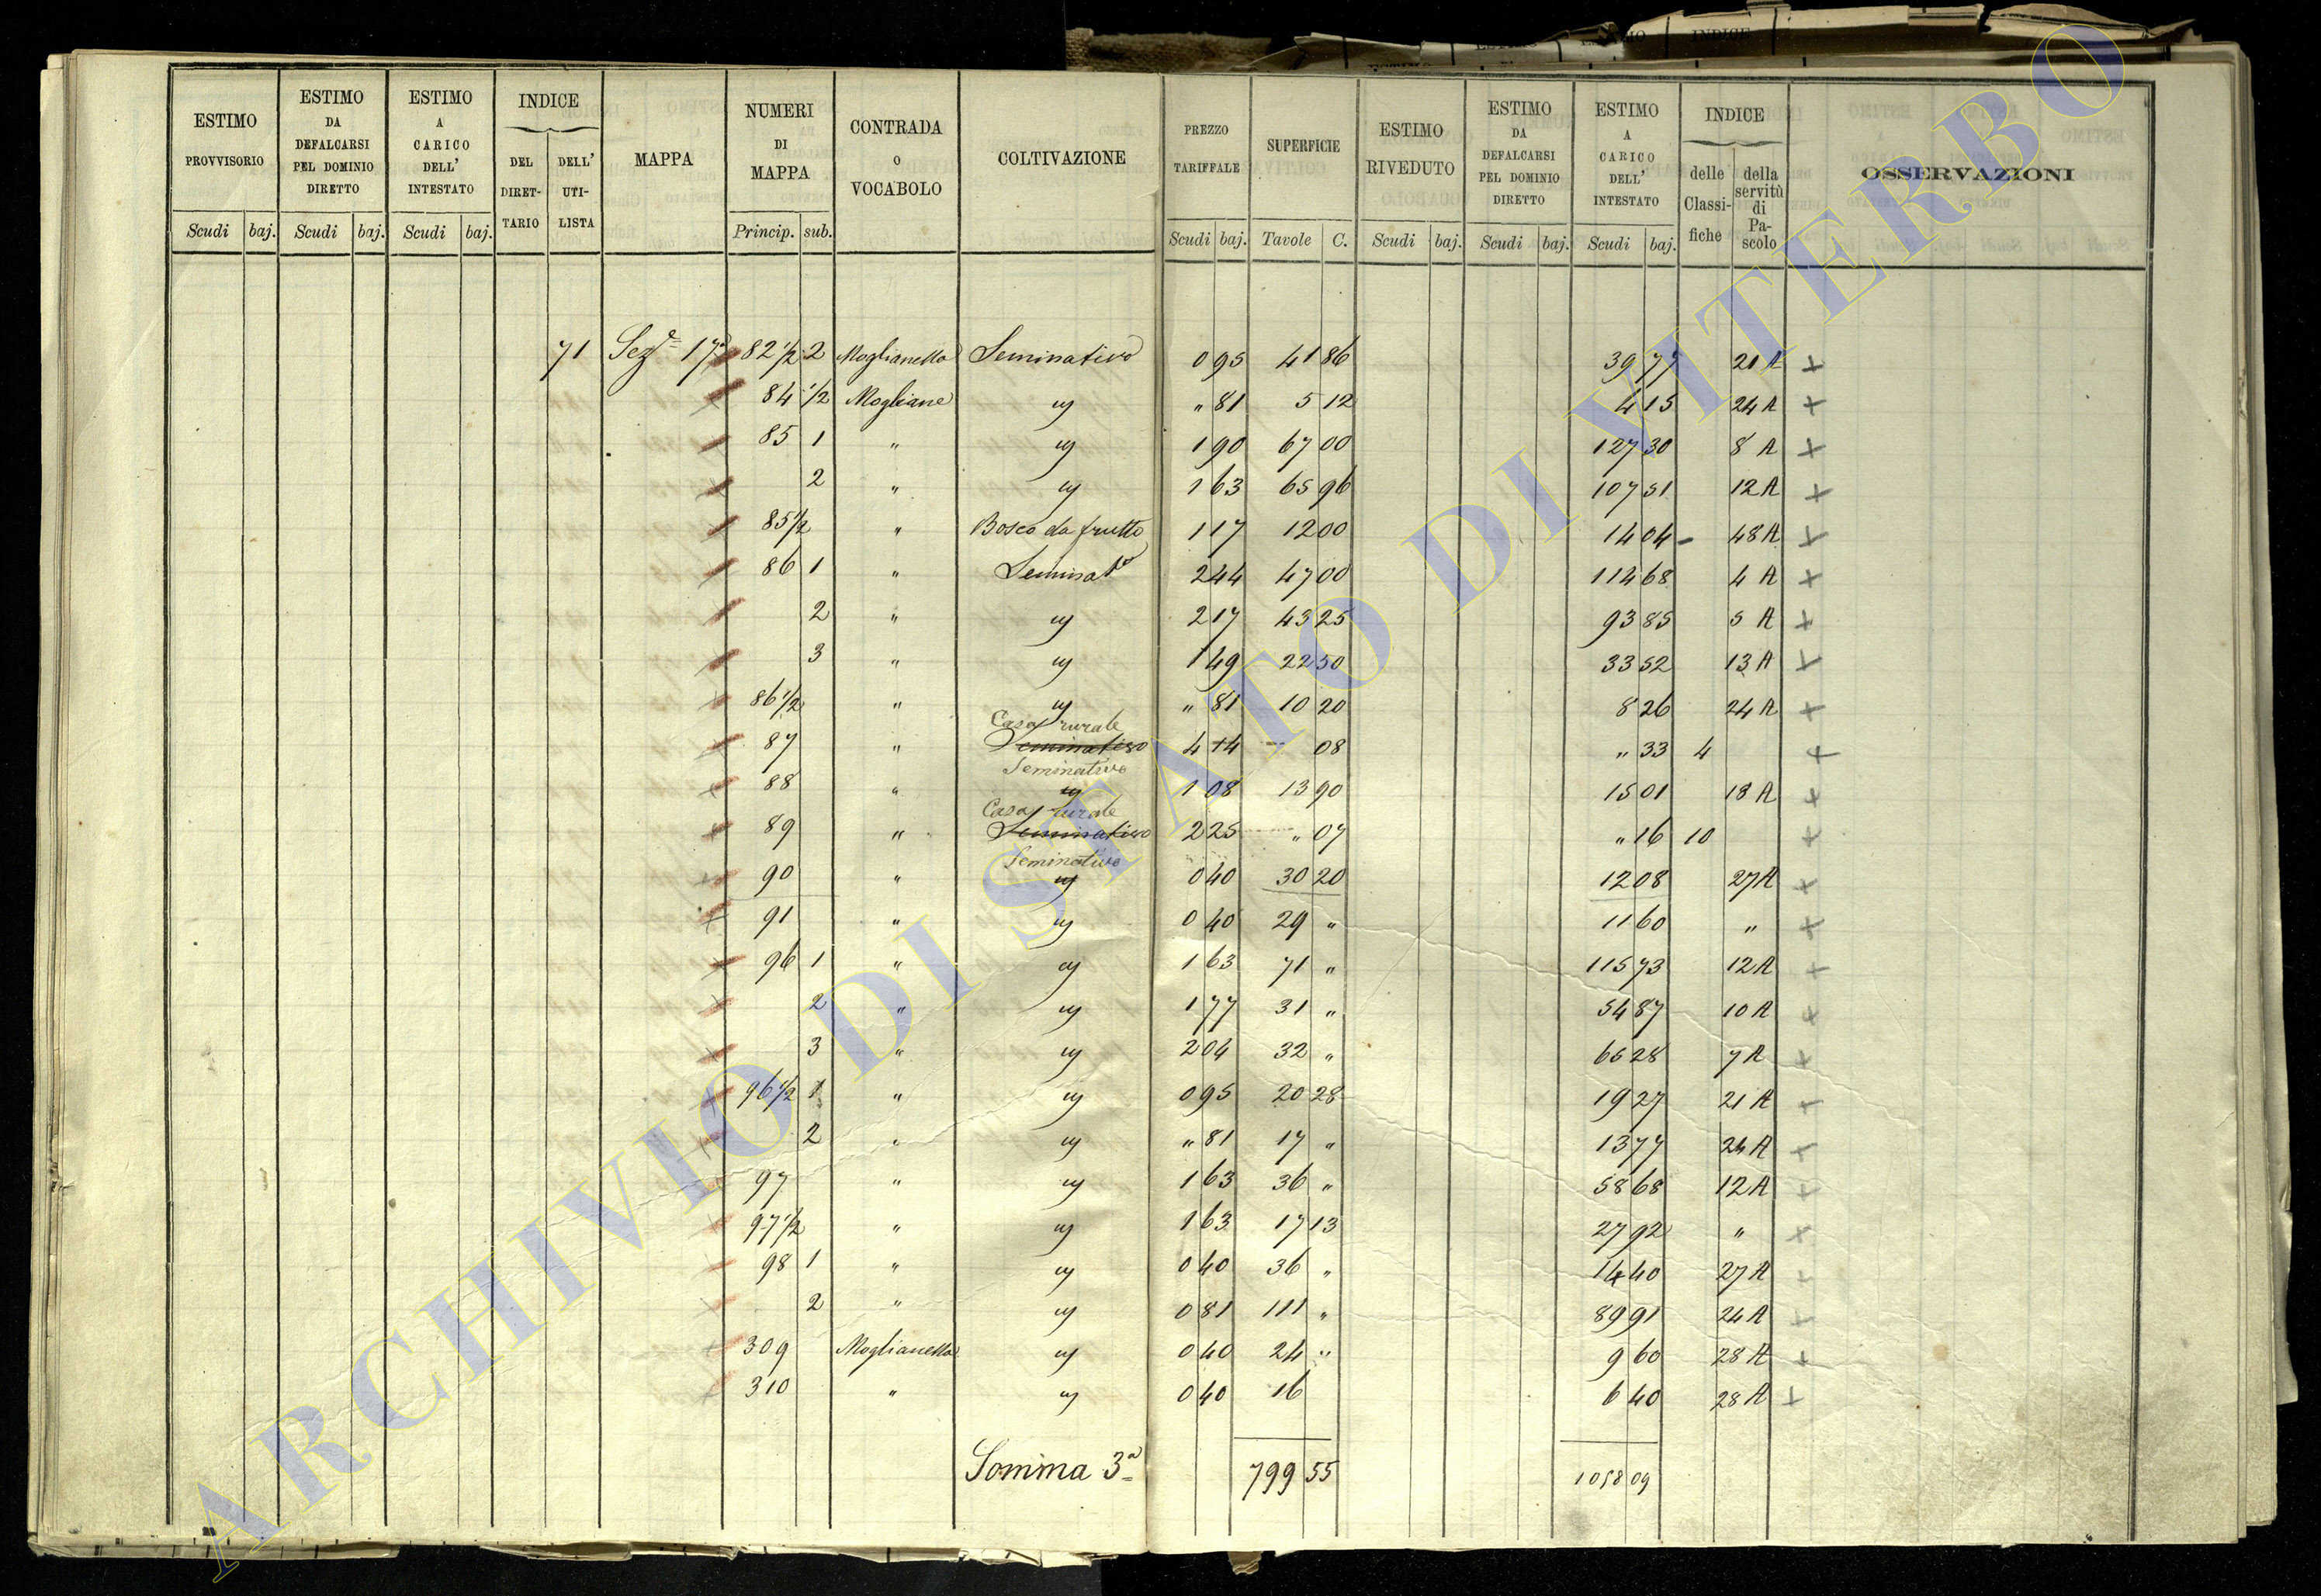 ESTIMO PROVVISORIO | ESTIMO DA DEFALCARSI PEL DOMINIO DIRETTO | ESTIMO A CARICO DELL' INTESTATO | INDICE DEL DIRET-TARIO | DELL' UTI-LISTA | MAPPA | NUMERI DI MAPPA | CONTRADA O VOCABOLO | COLTIVAZIONE | PREZZO TARIFFALE | SUPERFICIE | ESTIMO RIVEDUTO | ESTIMO DA DEFALCARSI PEL DOMINIO DIRETTO | ESTIMO A CARICO DELL' INTESTATO | INDICE delle Classi-fiche | della servitù di Pa-scolo | OSSERVAZIONI
Scudi baj. | Scudi baj. | Scudi baj. | Princip. sub. | Scudi baj. | Tavole C. | Scudi baj. | Scudi baj. | Scudi baj.
71 Sez.e 17a 82 1/2 2 Moglianella Seminativo 0 95 41 86 39 77 21 A x
84 1/2 Mogliane " " 81 5 12 4 15 24 A x
85 1 " " 1 90 67 00 127 30 8 A x
2 " " 1 63 65 96 107 51 12 A x
85 1/2 " Bosco da frutto 1 17 12 00 14 04 - 48 A x
86 1 " Seminat.o 2 44 47 00 114 68 4 A x
2 " " 2 17 43 25 93 85 5 A x
3 " " 1 49 22 50 33 52 13 A x
86 1/2 " " " 81 10 20 8 26 24 A x
Casa rurale
87 " Seminativo 4 +4 08 " 33 4 x
Seminativo
88 " " 1 08 13 90 15 01 18 A x
Casa rurale
89 " Seminativo 2 25 " 07 " 16 10 x
Seminativo
90 " " 0 40 30 20 12 08 27 A x
91 " " 0 40 29 " 11 60 " x
96 1 " " 1 63 71 " 115 73 12 A x
2 " " 1 77 31 " 54 87 10 A x
3 " " 2 04 32 " 65 28 7 A x
96 1/2 1 " " 0 95 20 28 19 27 21 A x
2 " " " 81 17 " 13 77 24 A x
97 " " 1 63 36 " 58 68 12 A x
97 1/2 " " 1 63 17 13 27 92 " x
98 1 " " 0 40 36 " 14 40 27 A x
2 " " 0 81 111 " 89 91 24 A x
309 Moglianella " 0 40 24 " 9 60 28 A x
310 " " 0 40 16 6 40 28 A x
Somma 3a 799 55 1058 09
ARCHIVIO DI STATO DI VITERBO